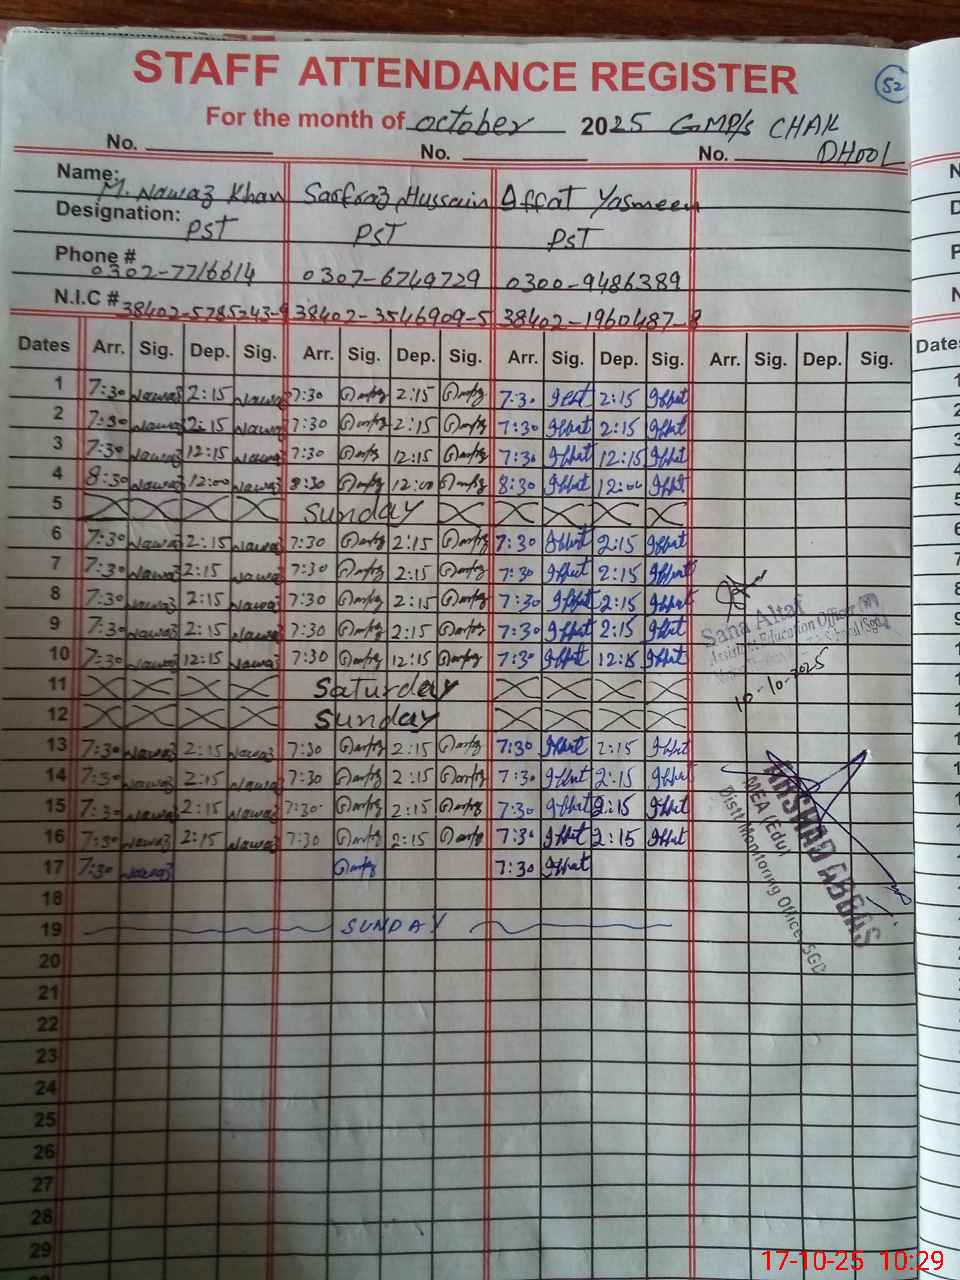 STAFF ATTENDANCE REGISTER
52
For the month of october 2025 GMP/s CHAK
DHOOL
No. No. No.
Name: M. Nawaz Khan Sarfraz Hussain Affat Yasmeen
Designation: PST PST PST
Phone # 0302-7716614 0307-6749729 0300-9486389
N.I.C # 38402-5785243-9 38402-3546909-5 38402-1960487-8
Dates Arr. Sig. Dep. Sig. Arr. Sig. Dep. Sig. Arr. Sig. Dep. Sig. Arr. Sig. Dep. Sig. Dates
1 7:30 Nawaz 2:15 Nawaz 7:30 2:15 7:30 2:15
2 7:30 Nawaz 2:15 Nawaz 7:30 2:15 7:30 2:15
3 7:30 Nawaz 12:15 Nawaz 7:30 12:15 7:30 12:15
4 8:30 Nawaz 12:00 Nawaz 8:30 12:00 8:30 12:00
5 Sunday
6 7:30 Nawaz 2:15 Nawaz 7:30 2:15 7:30 2:15
7 7:30 Nawaz 2:15 Nawaz 7:30 2:15 7:30 2:15
8 7:30 Nawaz 2:15 Nawaz 7:30 2:15 7:30 2:15
9 7:30 Nawaz 2:15 Nawaz 7:30 2:15 7:30 2:15
10 7:30 Nawaz 12:15 Nawaz 7:30 12:15 7:30 12:15
Sana Altaf
Education Officer
10-10-2025
11 Saturday
12 Sunday
13 7:30 Nawaz 2:15 Nawaz 7:30 2:15 7:30 2:15
14 7:30 Nawaz 2:15 Nawaz 7:30 2:15 7:30 2:15
15 7:30 Nawaz 2:15 Nawaz 7:30 2:15 7:30 2:15
16 7:30 Nawaz 2:15 Nawaz 7:30 2:15 7:30 2:15
17 7:30 Nawaz 7:30
ARSHAD ABBAS
MEA (Edu)
Distt Monitoring Office, SGD
18
19 SUNDAY
20
21
22
23
24
25
26
27
28
29
17-10-25 10:29